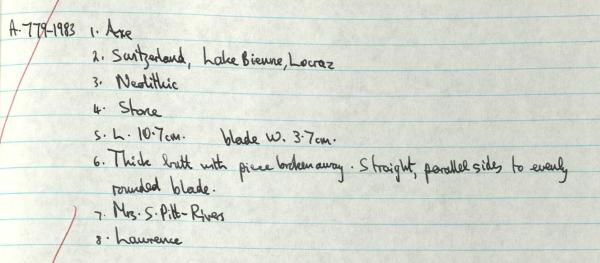 A.779-1983 1. Axe
2. Switzerland, Lake Bienne, Locraz
3. Neolithic
4. Stone
5. L. 10.7cm. blade W. 3.7cm.
6. Thick butt with piece broken away. Straight, parallel sides to evenly
rounded blade.
7. Mrs. S. Pitt-Rivers
8. Lawrence